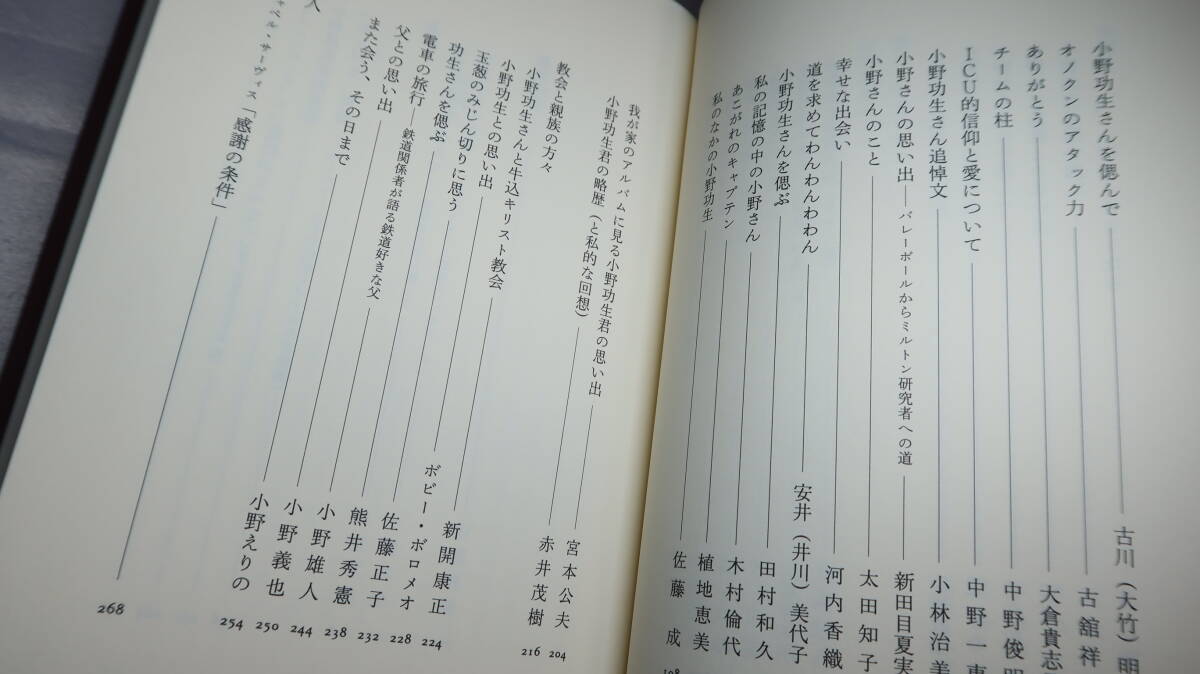 小野功生さんを偲んで――古川（大竹）明
オノクンのアタック力――古舘祥
ありがとう――大倉貴志
チームの柱――中野俊明
ICU的信仰と愛について――中野一
小野功生さん追悼文――小林治美
小野さんの思い出――バレーボールからミルトン研究者への道――新田目夏実
小野さんのこと――太田知子
幸せな出会い――河内香織
道を求めてわんわんわわん――安井（井川）美代子
小野功生さんを偲ぶ――田村和久
私の記憶の中の小野さん――木村倫代
あこがれのキャプテン――植地恵美
私のなかの小野功生――佐藤 成 198
我が家のアルバムに見る小野功生君の思い出――宮本公夫 204
小野功生君の略歴（と私的な回想）――赤井茂樹 216
教会と親族の方々
小野功生さんと牛込キリスト教会――新開康正 224
小野功生との思い出――ボビー・ボロメオ 228
玉葱のみじん切りに思う――佐藤正子 232
功生さんを偲ぶ――熊井秀憲 238
電車の旅行――鉄道関係者が語る鉄道好きな父――小野雄人 244
父との思い出――小野義也 250
また会う、その日まで――小野えりの 254
人
ャペル・サーヴィス「感謝の条件」――268